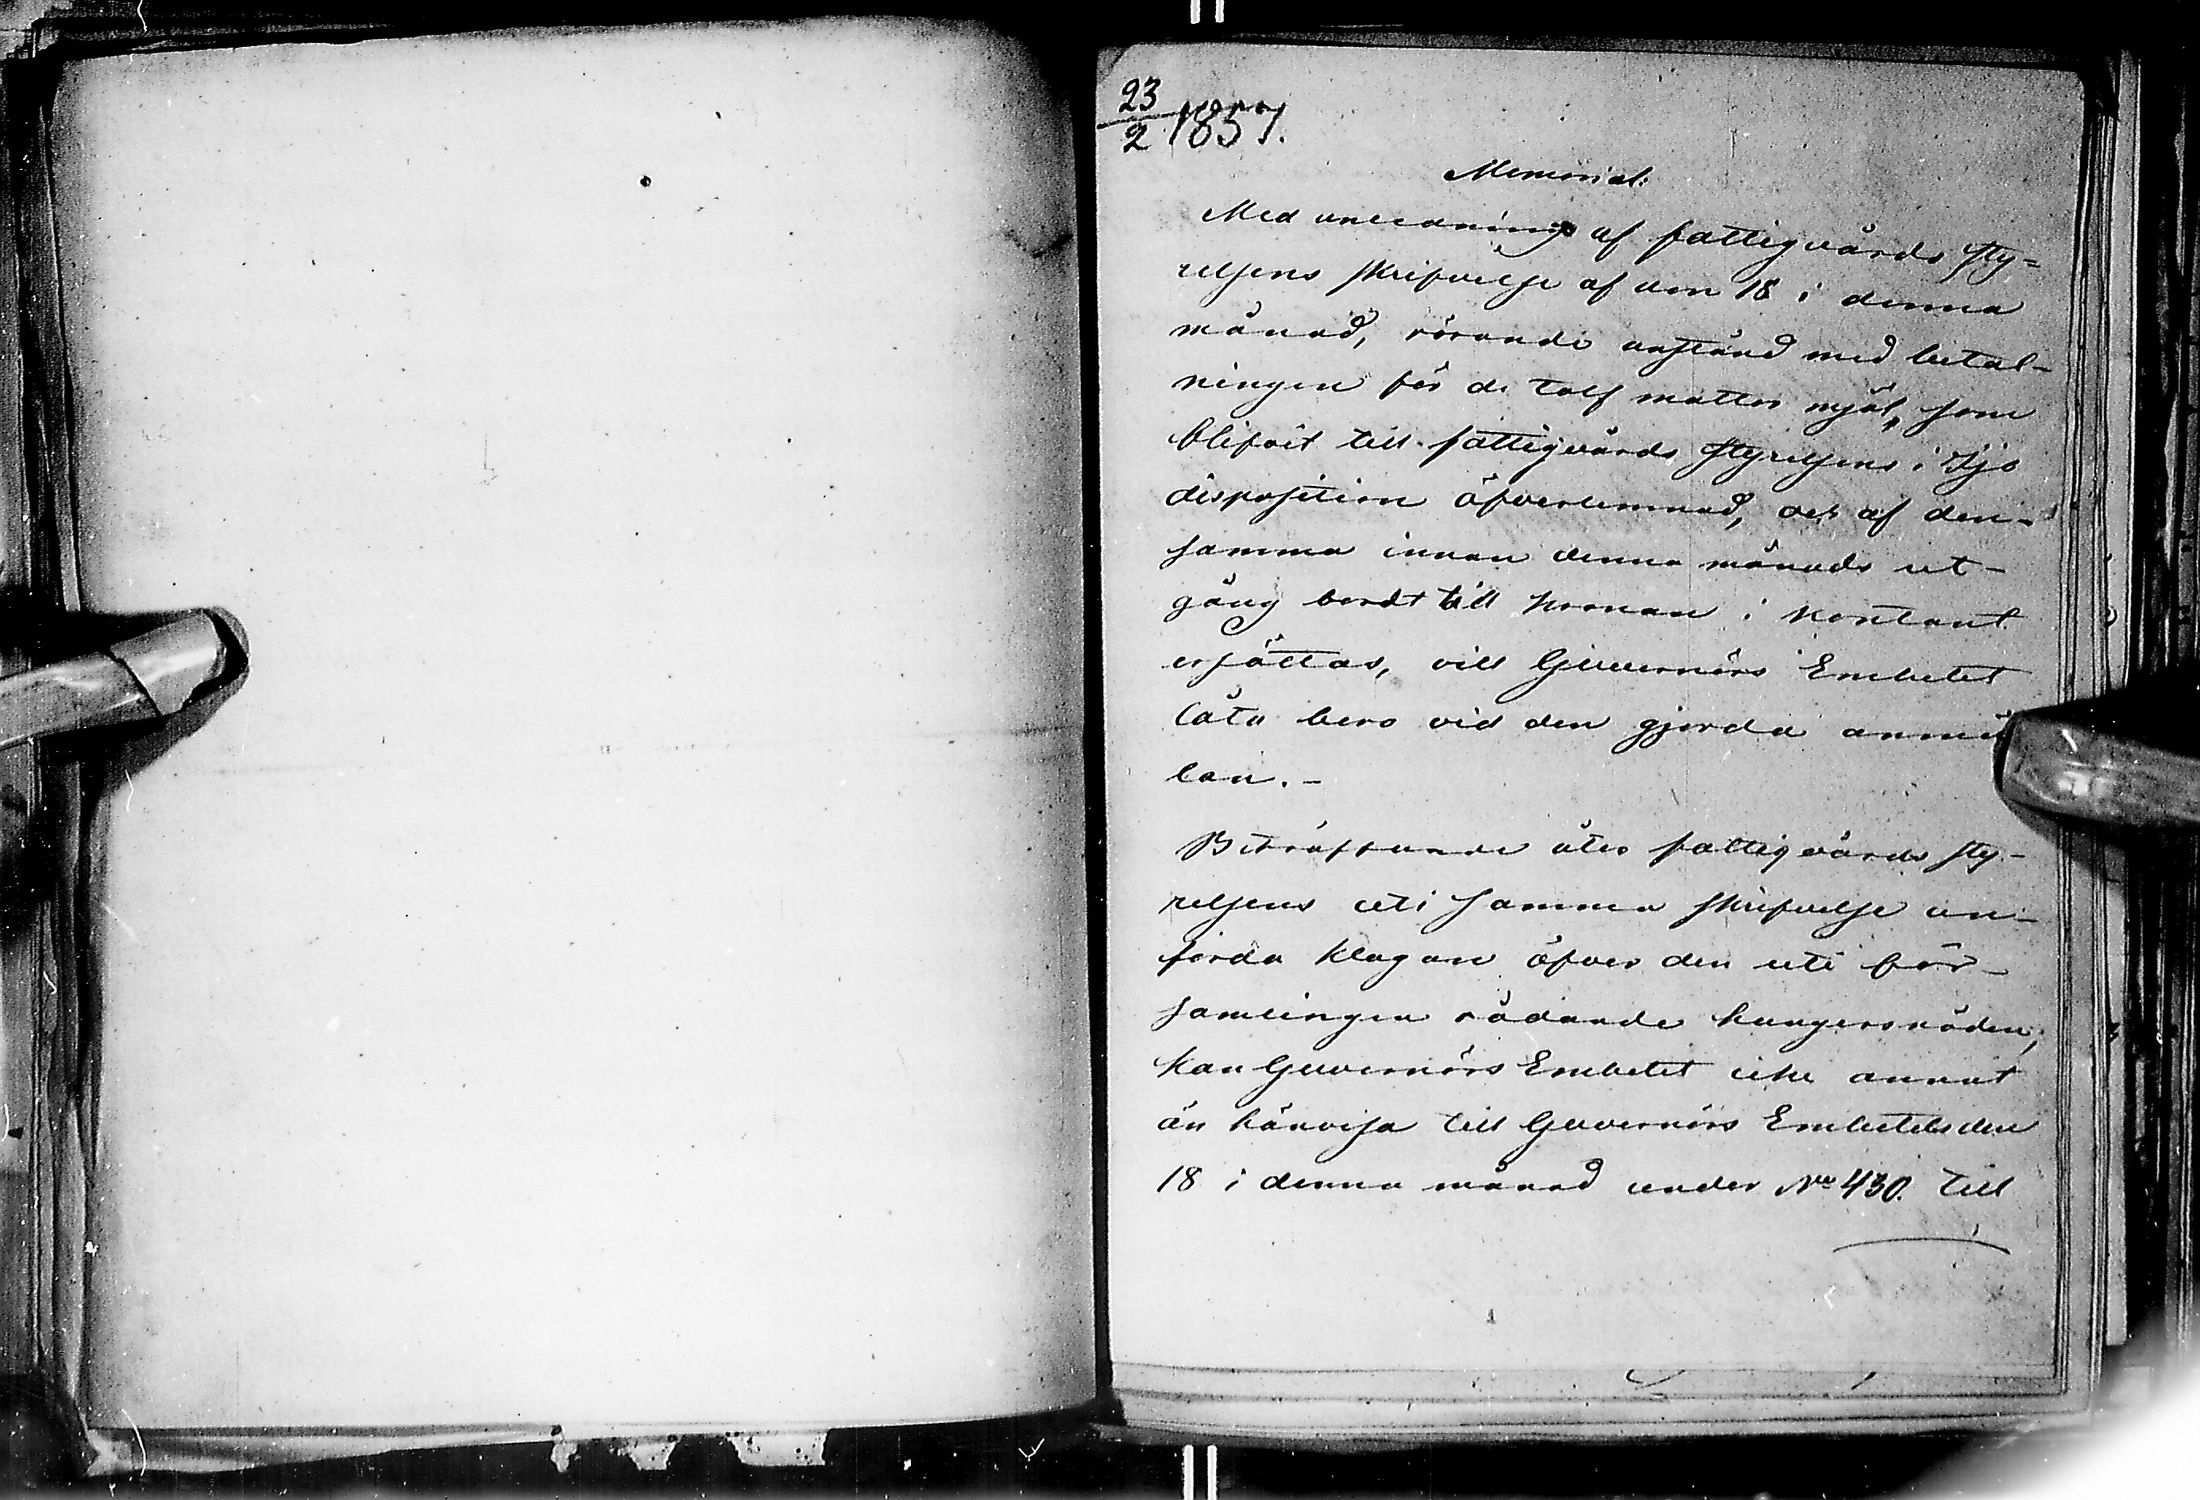 23/2 1857.
Memorial:
Med anledning af fattigvårds sty=
relsens skrifvelse af den 18 i denna
månad, rörande anstånd med betal-
ningen för de tolf mattor mjöl, som
blifvit till fattigvårds styrelsens i Ijo
disposition öfverlemnad, och af den-
samma innan denna månads ut-
gång bordt till kronan i kontant
ersättas, vill Guvernörs Embetet
låta bero vid den gjorda anmä
lan. -
Beträffande åter fattigvårds sty-
relsens uti samma skrifvelse an-
förda klagan öfver den uti för-
samlingen rådande hungersnöden,
kan Guvernörs Embetet icke annat
än hänvisa till Guvernörs Embetets den
18 i denna månad under No 430. till